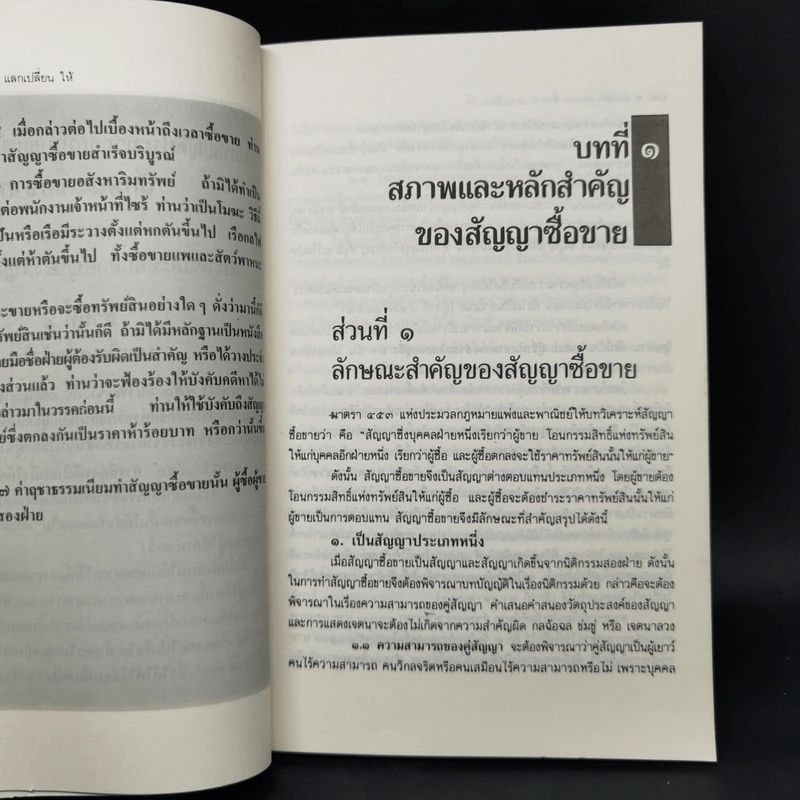 แลกเปลี่ยน ให้
เมื่อกล่าวต่อไปเบื้องหน้าถึงเวลาซื้อขาย ท่าน
าสัญญาซื้อขายสำเร็จบริบูรณ์
การซื้อขายอสังหาริมทรัพย์ ถ้ามิได้ทำเป็น
ต่อพนักงานเจ้าหน้าที่ไซร้ ท่านว่าเป็นโมฆะ วิธีนี้
ป็นหรือเรือมีระวางตั้งแต่หกตันขึ้นไป เรือกลไฟ
ั้งแต่ห้าตันขึ้นไป ทั้งซื้อขายแพและสัตว์พาหนะ
ะขายหรือจะซื้อทรัพย์สินอย่างใด ๆ ดั่งว่ามานี้ก็ดี
รัพย์สินเช่นว่านั้นก็ดี ถ้ามิได้มีหลักฐานเป็นหนังสือ
ยมือชื่อฝ่ายผู้ต้องรับผิดเป็นสำคัญ หรือได้วางประจำ
งส่วนแล้ว ท่านว่าจะฟ้องร้องให้บังคับคดีหาได้ไม่
ล่าวมาในวรรคก่อนนี้ ท่านให้ใช้บังคับถึงสัญญา
ย์ซึ่งตกลงกันเป็นราคาห้าร้อยบาท หรือกว่านั้นขึ้น
๗ ค่าฤชาธรรมเนียมทำสัญญาซื้อขายนั้น ผู้ซื้อผู้ขาย
สองฝ่าย
บทที่ ๑
สภาพและหลักสำคัญ
ของสัญญาซื้อขาย
ส่วนที่ ๑
ลักษณะสำคัญของสัญญาซื้อขาย
มาตรา ๔๕๓ แห่งประมวลกฎหมายแพ่งและพาณิชย์ให้บทวิเคราะห์สัญญา
ซื้อขายว่า คือ "สัญญาซึ่งบุคคลฝ่ายหนึ่งเรียกว่าผู้ขาย โอนกรรมสิทธิ์แห่งทรัพย์สิน
ให้แก่บุคคลอีกฝ่ายหนึ่ง เรียกว่าผู้ซื้อ และผู้ซื้อตกลงจะใช้ราคาทรัพย์สินนั้นให้แก่ผู้ขาย"
ดังนั้น สัญญาซื้อขายจึงเป็นสัญญาต่างตอบแทนประเภทหนึ่ง โดยผู้ขายต้อง
โอนกรรมสิทธิ์แห่งทรัพย์สินให้แก่ผู้ซื้อ และผู้ซื้อจะต้องชำระราคาทรัพย์สินนั้นให้แก่
ผู้ขายเป็นการตอบแทน สัญญาซื้อขายจึงมีลักษณะที่สำคัญสรุปได้ดังนี้
๑. เป็นสัญญาประเภทหนึ่ง
เมื่อสัญญาซื้อขายเป็นสัญญาและสัญญาเกิดขึ้นจากนิติกรรมสองฝ่าย ดังนั้น
ในการทำสัญญาซื้อขายจึงต้องพิจารณาบทบัญญัติในเรื่องนิติกรรมด้วย กล่าวคือจะต้อง
พิจารณาในเรื่องความสามารถของคู่สัญญา คำเสนอคำสนองวัตถุประสงค์ของสัญญา
และการแสดงเจตนาจะต้องไม่เกิดจากความสำคัญผิด กลฉ้อฉล ข่มขู่ หรือ เจตนาลวง
๑.๑ ความสามารถของคู่สัญญา จะต้องพิจารณาว่าคู่สัญญาเป็นผู้เยาว์
คนไร้ความสามารถ คนวิกลจริตหรือคนเสมือนไร้ความสามารถหรือไม่ เพราะบุคคล